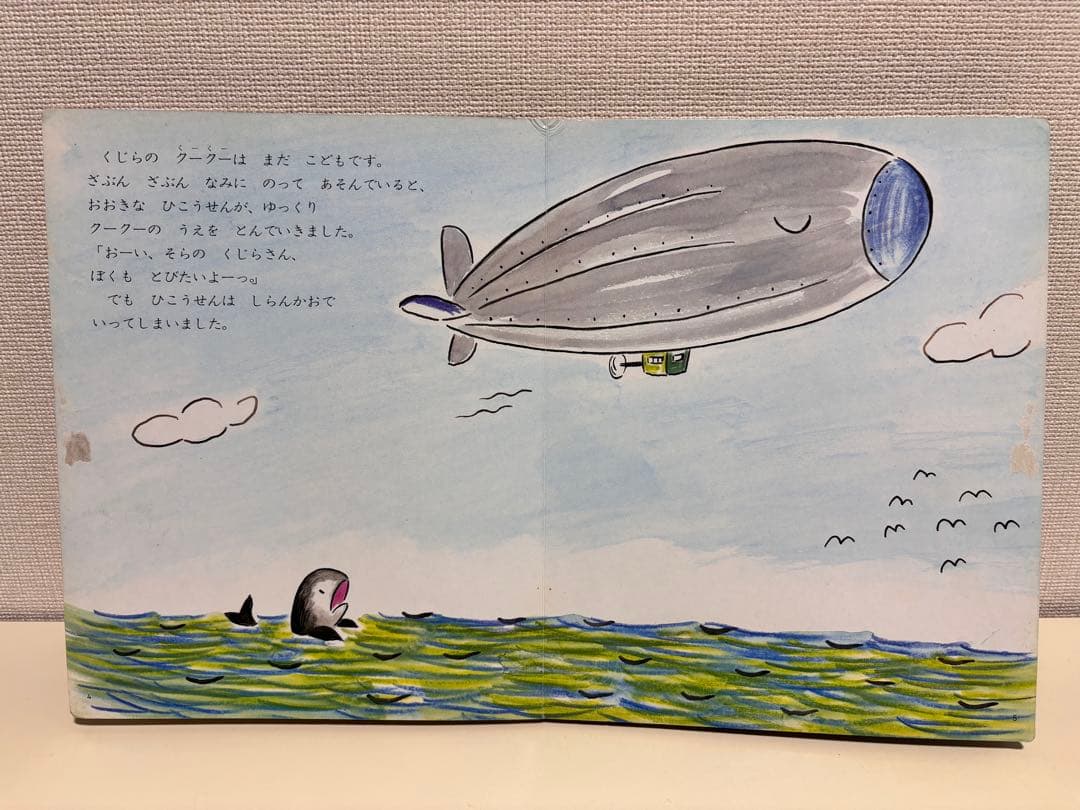 くじらの　クークーは　まだ　こどもです。
ざぶん　ざぶん　なみに　のって　あそんでいると、
おおきな　ひこうせんが、ゆっくり
クークーの　うえを　とんでいきました。
「おーい、そらの　くじらさん、
ぼくも　とびたいよーっ。」
でも　ひこうせんは　しらんかおで
いってしまいました。
4
5